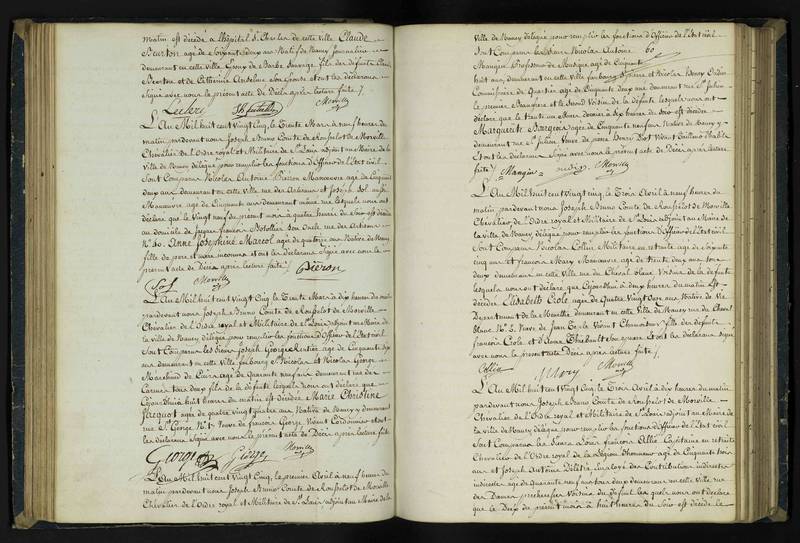 matin est décédé à l'hôpital St Charles de cette ville Claude
Berton agé de Soixante deux ans Natif de Nancy Journalier
demeurant en cette ville Epoux de Barbe Sauvage fils des défunts Claude
Berton et de Catherine Anselme son Epouse et ont les déclarans
Signé avec nous le présent acte de Décès après lecture faite /
Leclerc Morville
L'An Mil huit cent Vingt Cinq, le Trente Mars à neuf heures du
matin pardevant nous Joseph Bruno Comte de Morville
Chevalier de l'Ordre royal et Militaire de St Louis adjoint au Maire de la
Ville de Nancy délégué pour remplir les fonctions d'Officier de l'Etat civil
Sont Comparus Nicolas Antoine Pieron Manœuvre agé de Cinquante
deux ans demeurant en cette ville rue des et Joseph Sol aussi
Manœuvre agé de Cinquante ans demeurant même rue lesquels nous ont
déclaré que le Vingt neuf du présent mois à quatre heures du Soir est décédée
au domicile de françois son oncle rue des
N° 60. Anne Josephine Marcol agée de quatorze ans Native de Nancy
fille de père et mère inconnus et ont les déclarans Signé avec nous le
présent acte de Décès après lecture faite / Pieron
Sol Morville
L'An Mil huit cent Vingt Cinq le Trente Mars à dix heures du matin
pardevant nous Joseph Bruno Comte de Morville
Chevalier de l'Ordre royal et Militaire de St Louis adjoint au Maire de
la Ville de Nancy délégué pour remplir les fonctions d'Officier de l'Etat civil
Sont Comparus les Sieurs Joseph George Rentier agé de Cinquante
ans demeurant en cette ville faubourg St Nicolas et Nicolas George
Marchand de Cuirs agé de Quarante neuf ans demeurant rue des
Carmes tous deux fils de la défunte lesquels nous ont déclaré que
Cejourd'hui à huit heures du matin est décédée Marie Christine
Jacquot agée de quatre Vingt quatre ans Native de Nancy y demeurant
rue St George N° Veuve de françois George Vivant Cordonnier et ont
les déclarans Signé avec nous le présent acte de Décès après lecture faite
George George Morville
L'An Mil huit cent Vingt Cinq, le premier Avril à neuf heures du
matin pardevant nous Joseph Bruno Comte de Morville
Chevalier de l'Ordre royal et Militaire de St Louis adjoint au Maire de la
Ville de Nancy délégué pour remplir les fonctions d'Officier de l'Etat civil
Sont Comparus les Sieurs Nicolas Antoine 60
Mangin Professeur de Musique agé de Cinquante
huit ans demeurant en cette ville faubourg St Pierre et Nicolas
Commissaire de Quartier agé de Cinquante deux ans demeurant rue St Julien
le premier Beaufrère et le Second Voisin de la défunte lesquels nous ont
déclaré que le trente un Mars dernier à dix heures du Soir est décédée
Marguerite agée de Cinquante neuf ans Native de Nancy y
demeurant rue St Julien Veuve de Henry Vivant
et ont les déclarans Signé avec nous le présent acte de Décès après lecture
faite / Mangin Morville
L'An Mil huit cent Vingt Cinq, le Trois Avril à neuf heures du
matin pardevant nous Joseph Bruno Comte de Morville
Chevalier de l'Ordre royal et Militaire de St Louis adjoint au Maire de
la Ville de Nancy, délégué pour remplir les fonctions d'Officier de l'Etat civil
Sont Comparus Nicolas Collin Militaire en retraite agé de Soixante
cinq ans et françois Mary Manœuvre agé de trente deux ans tous
deux demeurant en cette Ville rue du Cheval blanc Voisins de la défunte
lesquels nous ont déclaré que Cejourd'hui à deux heures du matin est
décédée Elisabeth agée de Quatre Vingt Onze ans Native de Vic
Département de la Meurthe demeurant en cette Ville de Nancy rue du Cheval
blanc N° Veuve de Jean Vivant fille des défunts
françois et d'Anne Thiebault son Epouse et ont les déclarans signé
avec nous le présent acte Décès après lecture faite /
Collin Mary Morville
L'An Mil huit cent Vingt Cinq, le Trois Avril à dix heures du matin
pardevant nous Joseph Bruno Comte de Morville
Chevalier de l'Ordre royal et Militaire de St Louis adjoint au Maire de
la Ville de Nancy délégué pour remplir les fonctions d'Officier de l'Etat civil
Sont Comparus les Sieurs Louis françois Capitaine en retraite
Chevalier de l'Ordre royal de la Légion d'honneur agé de Cinquante trois
ans et Joseph Antoine Employé des Contributions indirectes
agé de Quarante neuf ans tous deux demeurant en cette Ville, rue
des Dames Voisins du défunt lesquels nous ont déclaré
que le Deux du présent mois à huit heures du Soir est décédé le